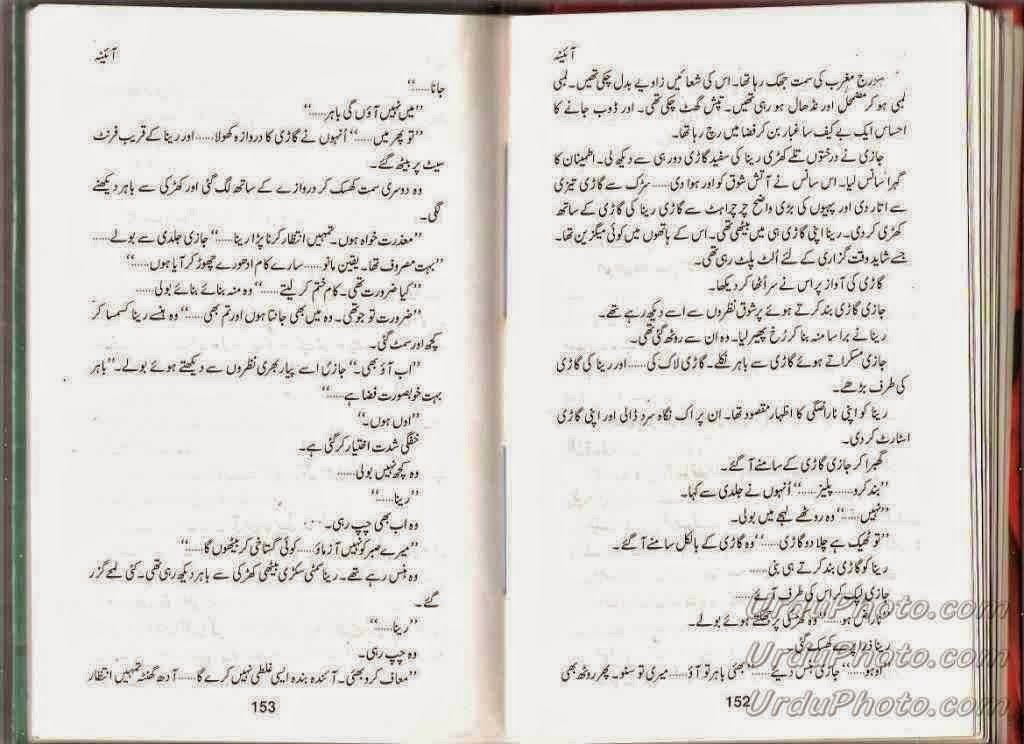 آئینہ
سورج مغرب کی سمت جھک رہا تھا۔ اس کی شعائیں زاویے بدل چکی تھیں۔ لمبی
لمبی ہو کر مضمحل اور نڈھال ہو رہی تھیں۔ تپش گھٹ چکی تھی۔ اور ڈوب جانے کا
احساس ایک بے کیف سا غبار بن کر فضا میں رچ رہا تھا۔
جازی نے درختوں تلے کھڑی رینا کی سفید گاڑی دور ہی سے دیکھ لی۔ اطمینان کا
گہرا سانس لیا۔ اس سانس نے آتش شوق کو اور ہوا دی...... سڑک سے گاڑی تیزی
سے اتار دی اور پہیوں کی بڑی واضح چرچراہٹ سے گاڑی رینا کی گاڑی کے ساتھ
کھڑی کر دی۔ رینا اپنی گاڑی ہی میں بیٹھی تھی۔ اس کے ہاتھوں میں کوئی میگزین تھا۔
جسے شاید وقت گزاری کے لئے اُلٹ پلٹ رہی تھی۔
گاڑی کی آواز پر اس نے سر اُٹھا کر دیکھا۔
جازی گاڑی بند کرتے ہوئے پر شوق نظروں سے اسے دیکھ رہے تھے۔
رینا نے برا سا منہ بنا کر رُخ پھیر لیا۔ وہ ان سے روٹھ گئی تھی۔
جازی مسکراتے ہوئے گاڑی سے باہر نکلے۔ گاڑی لاک کی...... اور رینا کی گاڑی
کی طرف بڑھے۔
رینا کو اپنی ناراضگی کا اظہار مقصود تھا۔ اِن پر اک نگاہ سرد ڈالی اور اپنی گاڑی
اسٹارٹ کر دی۔
گھبرا کر جازی گاڑی کے سامنے آ گئے۔
”بند کرو...... پلیز......“ اُنہوں نے جلدی سے کہا۔
”نہیں......“ وہ روٹھے لہجے میں بولی۔
”تو ٹھیک ہے چلا دو گاڑی......“ وہ گاڑی کے بالکل سامنے آ گئے۔
رینا کو گاڑی بند کرتے ہی بنی......
جازی لپک کر اس کی طرف آئے......
”ناراض ہو......“ وہ کھڑکی پر جھکتے ہوئے بولے۔
رینا ذرا پرے کھسک گئی۔
”اوہو......“ جازی ہنس دیئے...... ”بھئی باہر تو آؤ...... میری تو سنو۔ پھر روٹھ بھی
152
آئینہ
جانا......“
”میں نہیں آؤں گی باہر......“
”تو پھر میں......“ اُنہوں نے گاڑی کا دروازہ کھولا...... اور رینا کے قریب فرنٹ
سیٹ پر بیٹھ گئے۔
وہ دوسری سمت کھسک کر دروازے کے ساتھ لگ گئی اور کھڑکی سے باہر دیکھنے
لگی۔
”معذرت خواہ ہوں۔ تمہیں انتظار کرنا پڑا رینا......“ جازی جلدی سے بولے......
”بہت مصروف تھا۔ یقین مانو...... سارے کام ادھورے چھوڑ کر آیا ہوں......“
”کیا ضرورت تھی۔ کام ختم کر لیتے......“ وہ منہ بنائے بنائے بولی......
”ضرورت تو جو تھی۔ وہ میں بھی جانتا ہوں اور تم بھی......“ وہ ہنسے رینا کسمسا کر
کچھ اور سمٹ گئی۔
”اب آؤ بھی۔“ جازی اسے پیار بھری نظروں سے دیکھتے ہوئے بولے۔ ”باہر
بہت خوبصورت فضا ہے......“
”اوں ہوں۔“
خفگی شدت اختیار کر گئی ہے۔
وہ کچھ نہیں بولی......
”رینا......“
وہ اب بھی چپ رہی۔
”میرے صبر کو نہیں آزماؤ...... کوئی گستاخی کر بیٹھوں گا......“
وہ ہنس رہے تھے۔ رینا سمٹی سکڑی بیٹھی کھڑکی سے باہر دیکھ رہی تھی۔ کئی لمحے گزر
گئے۔
”رینا......“
وہ چپ رہی۔
”معاف کر دو بھئی۔ آئندہ بندہ ایسی غلطی نہیں کرے گا...... آدھ گھنٹہ تمہیں انتظار
153
UrduPhoto.com
UrduPhoto.com
UrduPhoto.com